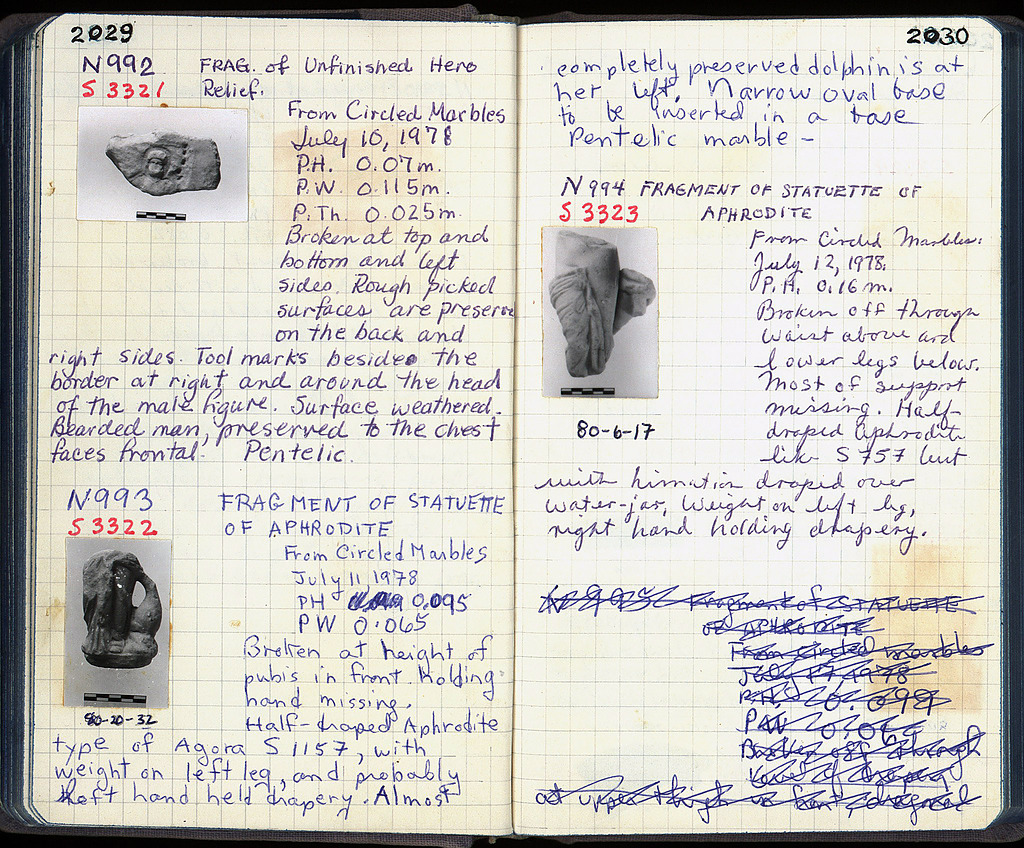 2029
N992 FRAG. of Unfinished Hero
S 3321 Relief.
From Circled Marbles
July 10, 1978
P.H. 0.07m.
P.W. 0.115m.
P.Th. 0.025m.
Broken at top and
bottom and left
sides. Rough picked
surfaces are preserve
on the back and
right sides. Tool marks besides the
border at right and around the head
of the male figure. Surface weathered.
Bearded man, preserved to the chest
faces frontal. Pentelic.
N993 FRAGMENT OF STATUETTE
S 3322 OF APHRODITE
From Circled Marbles
July 11, 1978
PH 0.095
PW 0.065
Broken at height of
pubis in front. Holding
hand missing.
Half-draped Aphrodite
80-20-32
type of Agora S 1157, with
weight on left leg, and probably
left hand held drapery. Almost
2030
completely preserved dolphin is at
her left. Narrow oval base
to be inserted in a base
Pentelic marble –
N994 FRAGMENT OF STATUETTE OF
S 3323 APHRODITE
From Circled Marbles:
July 12, 1978.
P.H. 0.16 m.
Broken off through
waist above and
lower legs below.
Most of support
missing. Half-
draped Aphrodite
like S 757 but
80-6-17
with himation draped over
water-jar, Weight on left leg,
right hand holding drapery.
N 995 Fragment of STATUETTE
OF APHRODITE
From Circled marbles
July 17, 1978
P.H. 0.094
PW 0.064
Broken off through
at upper thigh in front &